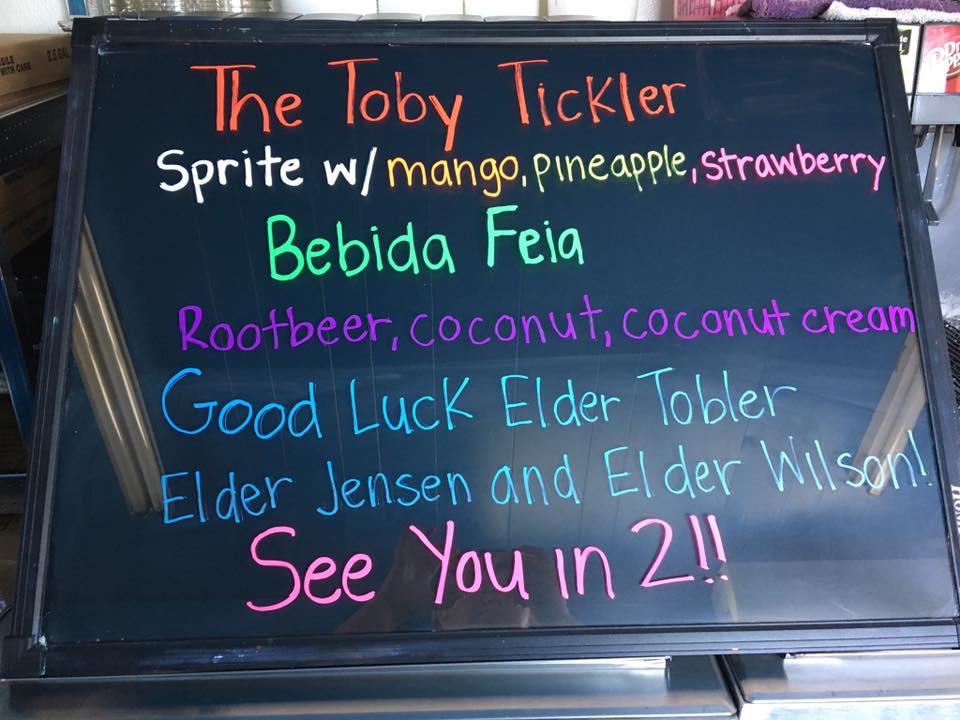 The Toby Tickler
Sprite w/ mango, pineapple, strawberry
Bebida Feia
Rootbeer, coconut, coconut cream
Good Luck Elder Tobler
Elder Jensen and Elder Wilson!
See You in 2!!
WITH CARE
2.5 GAL